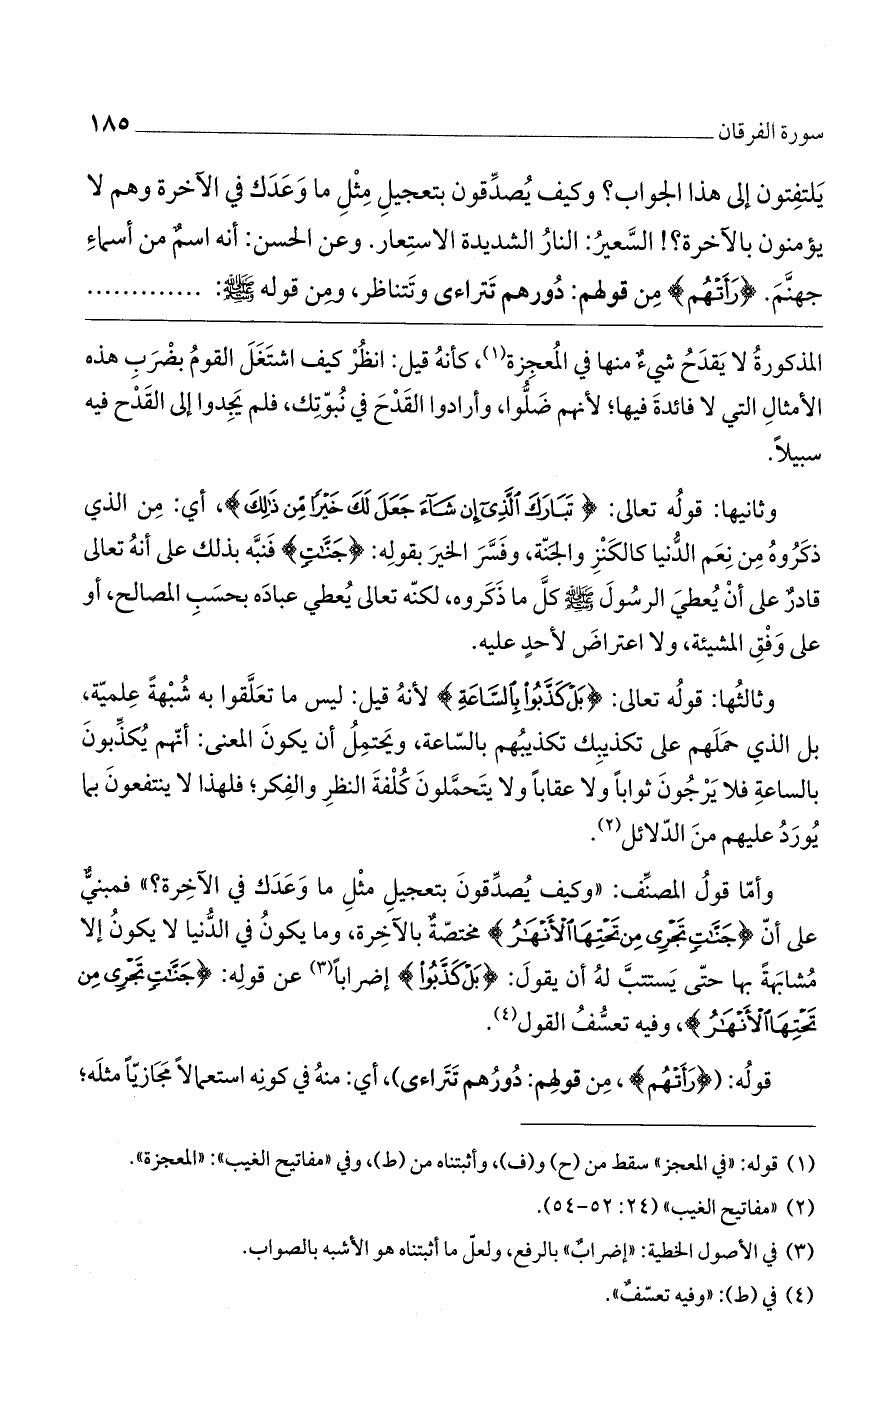 سورة الفرقان ــــــــــــــــــــــــــــــــــــــــ ١٨٥
يَلتفِتون إلى هذا الجواب؟ وكيف يُصدِّقون بتعجيلِ مِثْلِ ما وَعَدَك في الآخرة وهم لا
يؤمنون بالآخرة؟! السَّعيرُ: النارُ الشديدة الاستِعار. وعن الحسن: أنه اسمٌ من أسماءِ
جهنَّمَ. ﴿رَأَتْهُم﴾ مِن قولهم: دُورهم تَتراءى وتَتناظر، ومِن قوله ﷺ: .............
المذكورةُ لا يَقدَحُ شيءٌ منها في المُعجِزة(١)، كأنهُ قيل: انظُرْ كيف اشتَغَلَ القومُ بضْرَبِ هذه
الأمثالِ التي لا فائدةَ فيها؛ لأنهم ضَلُّوا، وأرادوا القَدْحَ في نُبوّتِك، فلم يَجِدوا إلى القَدْح فيه
سبيلاً.
وثانيها: قولُه تعالى: ﴿تَبَارَكَ ٱلَّذِىٓ إِن شَآءَ جَعَلَ لَكَ خَيْرًا مِّن ذَٰلِكَ﴾، أي: مِن الذي
ذكَرُوهُ مِن نِعَم الدُّنيا كالكَنْزِ والجَنّة، وفسَّرَ الخيرَ بقولِه: ﴿جَنَّٰتٍ﴾ فَنبَّه بذلك على أنهُ تعالى
قادرٌ على أنْ يُعطيَ الرسُولَ ﷺ كلَّ ما ذَكَروه، لكنّه تعالى يُعطي عبادَه بحسَبِ المصالح، أو
على وَفْقِ المشيئة، ولا اعتراضَ لأحدٍ عليه.
وثالثُها: قولُه تعالى: ﴿بَلْ كَذَّبُوا۟ بِٱلسَّاعَةِ﴾ لأنهُ قيل: ليس ما تعَلَّقوا به شُبْهةً عِلميّة،
بل الذي حَمَلَهم على تكذيبِك تكذيبُهم بالسّاعة، ويَحتمِلُ أن يكونَ المعنى: أنّهم يُكذِّبونَ
بالساعةِ فلا يَرْجُونَ ثواباً ولا عقاباً ولا يتَحمَّلونَ كُلْفةَ النظرِ والفِكر؛ فلهذا لا ينتفعونَ بما
يُورَدُ عليهم منَ الدّلائل(٢).
وأمّا قولُ المصنِّف: «وكيف يُصدِّقونَ بتعجيلِ مثْلِ ما وَعَدَك في الآخِرة؟» فمبنيٌّ
على أنّ ﴿جَنَّٰتٍ تَجْرِى مِن تَحْتِهَا ٱلْأَنْهَٰرُ﴾ مختصّةٌ بالآخِرة، وما يكونُ في الدُّنيا لا يكونُ إلا
مُشابَهةً بها حتّى يَستتبَّ لهُ أن يقولَ: ﴿بَلْ كَذَّبُوا۟﴾ إضراباً(٣) عن قولِه: ﴿جَنَّٰتٍ تَجْرِى مِن
تَحْتِهَا ٱلْأَنْهَٰرُ﴾، وفيه تعسُّفُ القول(٤).
قولُه: (﴿رَأَتْهُم﴾، مِن قولهِم: دُورُهم تَتَراءى)، أي: منهُ في كونِه استعمالاً مَجَازيّاً مثلَه؛
(١) قوله: «في المعجز» سقط من (ح) و(ف)، وأثبتناه من (ط)، وفي «مفاتيح الغيب»: «المعجزة».
(٢) «مفاتيح الغيب» (٢٤: ٥٢-٥٤).
(٣) في الأصول الخطية: «إضرابٌ» بالرفع، ولعلّ ما أثبتناه هو الأشبه بالصواب.
(٤) في (ط): «وفيه تعسّفٌ».